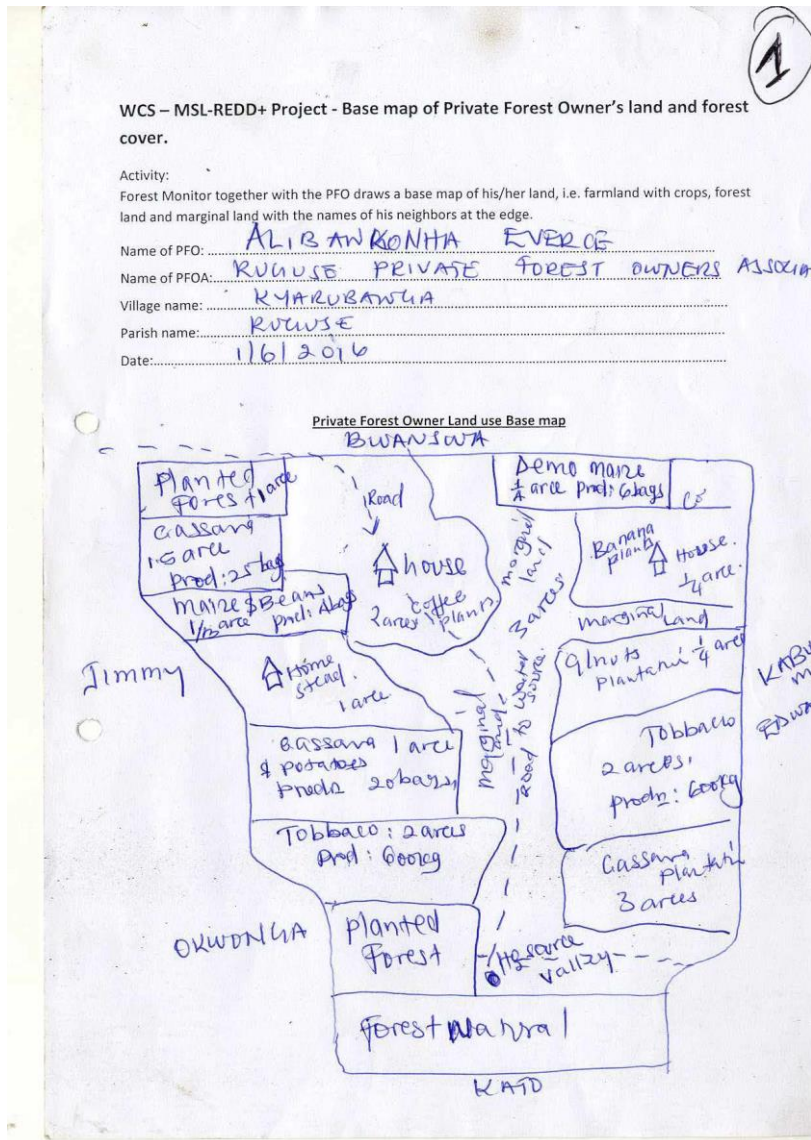 1
WCS – MSL-REDD+ Project - Base map of Private Forest Owner's land and forest
cover.
Activity:
Forest Monitor together with the PFO draws a base map of his/her land, i.e. farmland with crops, forest
land and marginal land with the names of his neighbors at the edge.
Name of PFO: ALIBAWKONHA EVERCE
Name of PFOA: RUGUSE PRIVATE FOREST OWNERS ASSOCIA
Village name: KYARUBANGA
Parish name: RUGUSE
Date: 1/6/2016
Private Forest Owner Land use Base map
BWANSWA
Planted
Forest 1 arce
Cassava
1.5 arce
Prod: 25 bags
Maize & Beans
1/2 arce prod: 4 bags
Road
house
2 arces coffee
plants
Demo maize
1/4 arce prod: 6 bags
Co
Banana
plants
House.
1/4 arce.
marginal Land
marginal
land
3 arces
Road to water
source.
marginal
land
Jimmy
Home
stead.
1 arce
G/nuts
plantatn 1/4 arce
KABU
EDWA
Cassava 1 arce
& potatoes
prodn 20 bags,
Tobbacco
2 arces,
prodn: 600kg
Tobbaco: 2 arces
Prod: 600kg
Cassava
plantatn
3 arces
OKWONGA
planted
Forest
H2 source
valley
Forest Natural
KATO